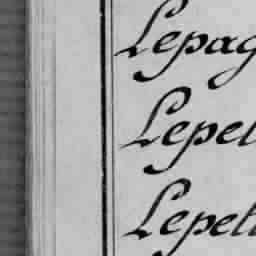 Lepag
Lepel
Lepelt